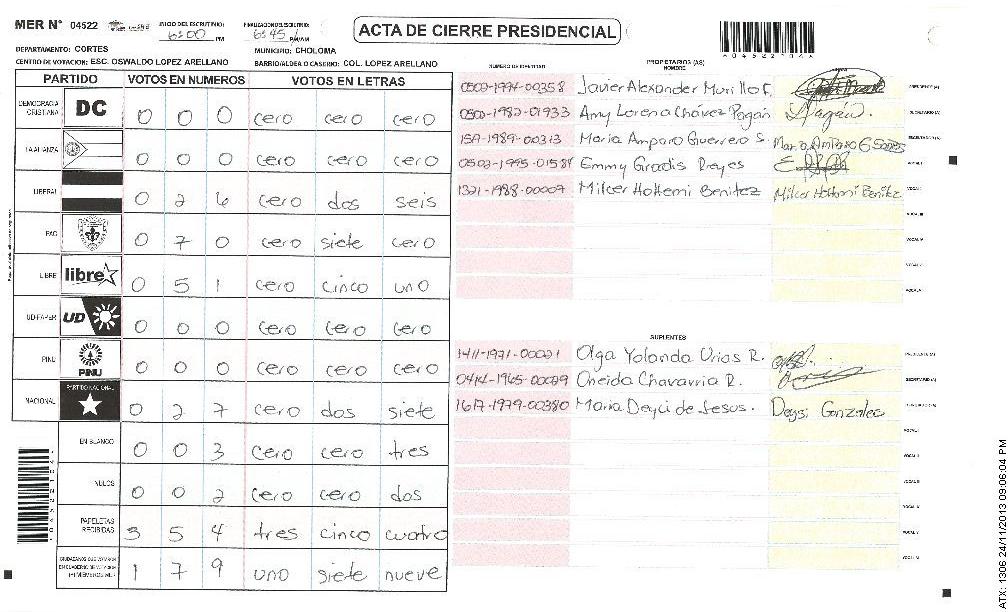 MER N° 04522
INICIO DEL ESCRUTINIO: 6:00 PM
FINALIZACION DEL ESCRUTINIO: 6:45 PM/AM
ACTA DE CIERRE PRESIDENCIAL
*045221041*
DEPARTAMENTO: CORTES
MUNICIPIO: CHOLOMA
CENTRO DE VOTACION: ESC. OSWALDO LOPEZ ARELLANO
BARRIO/ALDEA O CASERIO: COL. LOPEZ ARELLANO
PARTIDO VOTOS EN NUMEROS VOTOS EN LETRAS
DEMOCRACIA CRISTIANA DC 0 0 0 cero cero cero
LA ALIANZA 0 0 0 cero cero cero
LIBERAL 0 2 6 cero dos seis
PAC 0 7 0 cero siete cero
LIBRE libre 0 5 1 cero cinco uno
UD FAPER UD 0 0 0 cero cero cero
PINU PINU 0 0 0 cero cero cero
NACIONAL PARTIDO NACIONAL 0 2 7 cero dos siete
EN BLANCO 0 0 3 cero cero tres
NULOS 0 0 2 cero cero dos
PAPELETAS RECIBIDAS 3 5 4 tres cinco cuatro
1 7 9 uno siete nueve
NUMERO DE IDENTIDAD PROPIETARIOS (AS) NOMBRE FIRMA
0502-1994-00358 Javier Alexander Murillo F. PRESIDENTE (A)
0502-1982-01933 Amy Lorena Chávez Pagán Pagán SECRETARIO (A)
Maria Amparo Guerrero S.
0502-1995-01584 Emmy Giradis Reyes VOCAL I
1321-1988-00009 Milcer Hottemi Benitez Milcer Hottemi Benitez VOCAL II
VOCAL III
VOCAL IV
VOCAL V
SUPLENTES
1411-1971-00021 Olga Yolanda Urias R. PRESIDENTE (A)
0414-1965-00029 Oneida Chavarria R. SECRETARIO (A)
1617-1979-00380 Maria Deyci de Jesus. Deysi Gonzalec
VOCAL I
VOCAL II
VOCAL III
VOCAL IV
VOCAL V
ATX: 1306 24/11/2013 09:06:04 PM